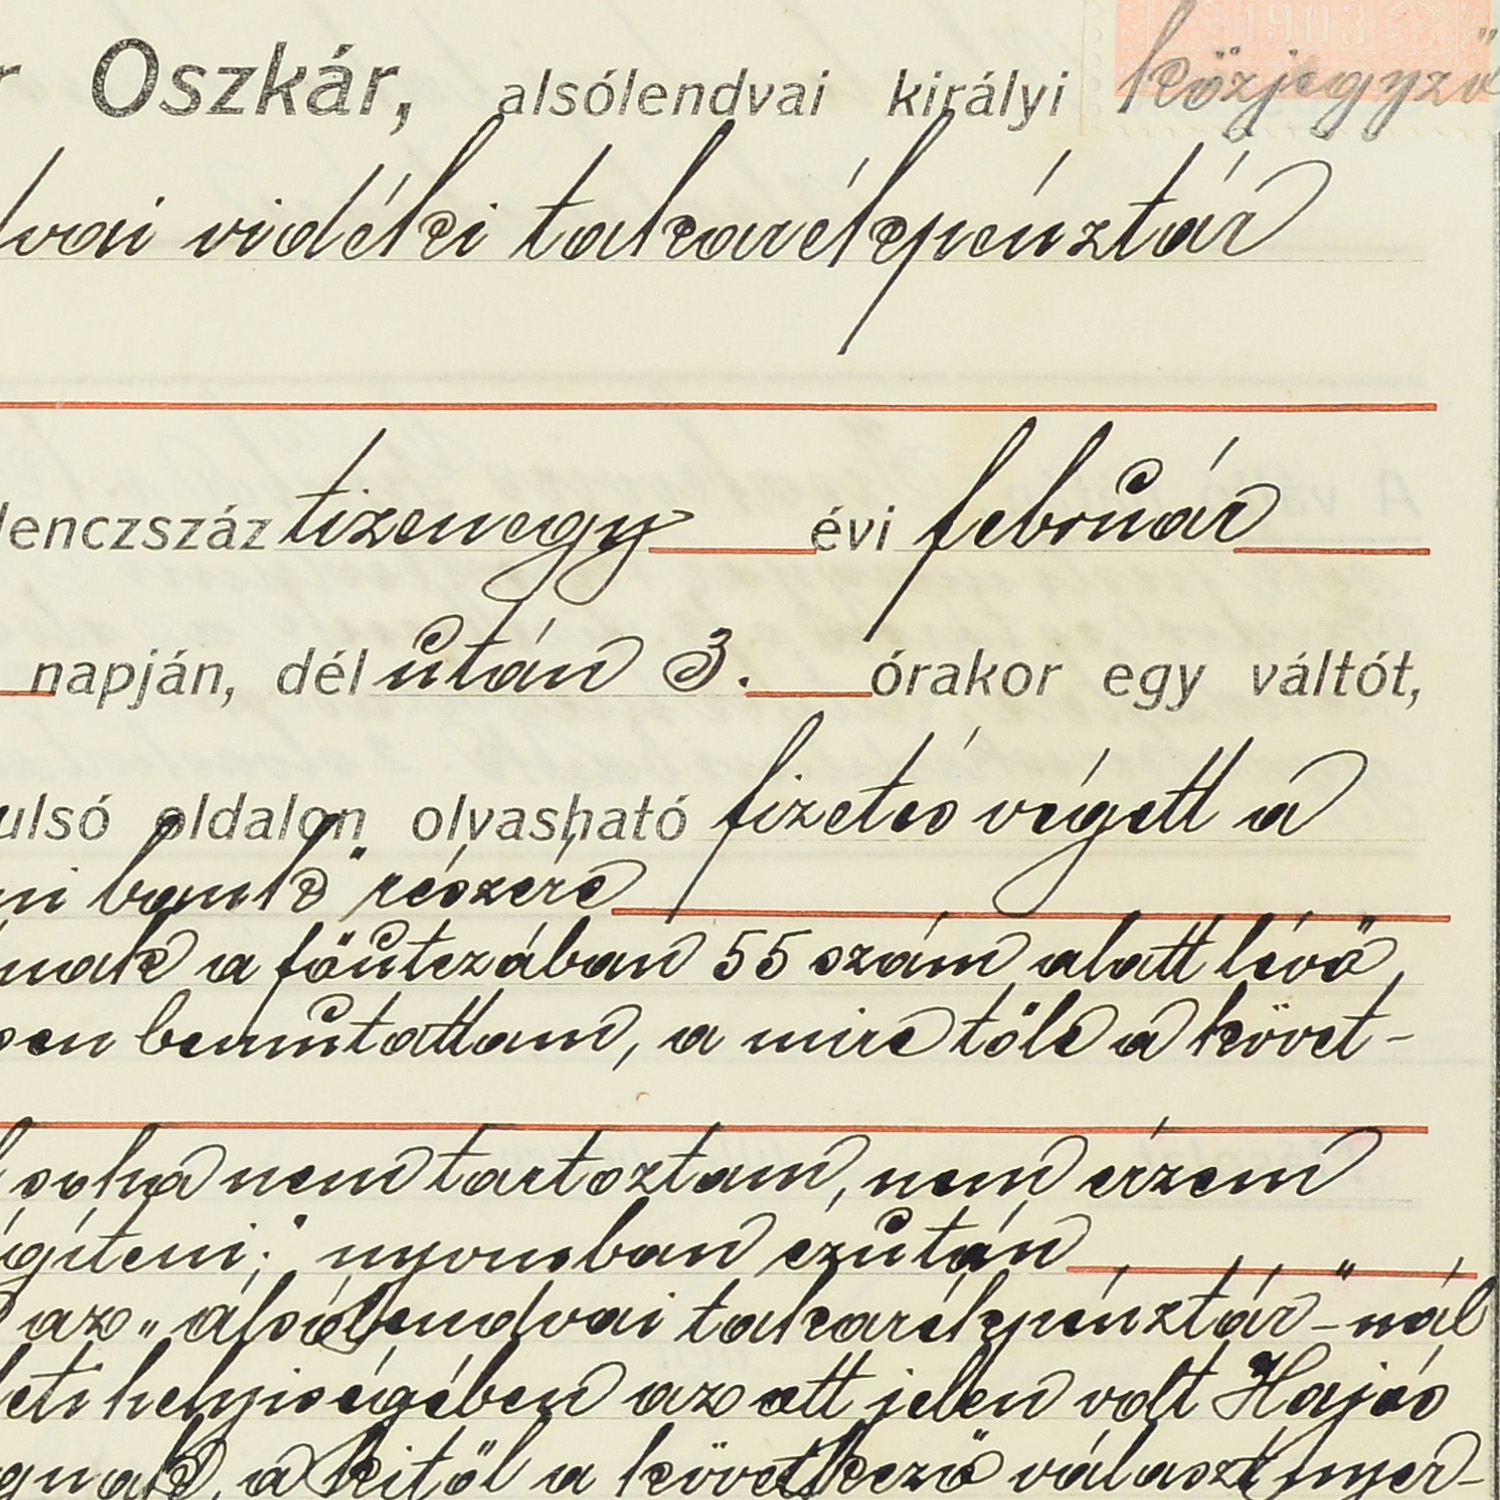 r Oszkár, alsólendvai királyi közjegyző
vai vidéki takarékpénztár
lenczszáz tizenegy évi február
napján, dél után 3. órakor egy váltót,
ulsó oldalon olvasható fizetés végett a
ni bank" részére
nak a főutczában 55 szám alatt lévő,
sen bemutattam, a mire tőle a követ-
soha nem tartoztam, nem érzem
égíteni;" nyomban ezután
az „alsólendvai takarékpénztár"-nál
leti helyiségében az ott jelen volt Hajós
gnak, a kitől a következő választ nyer-